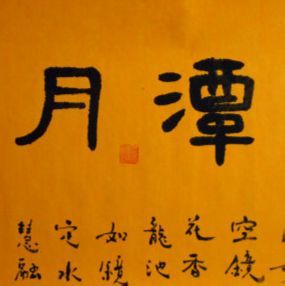 潭月
空鏡
花香
龍池
如鏡
定水
慧融